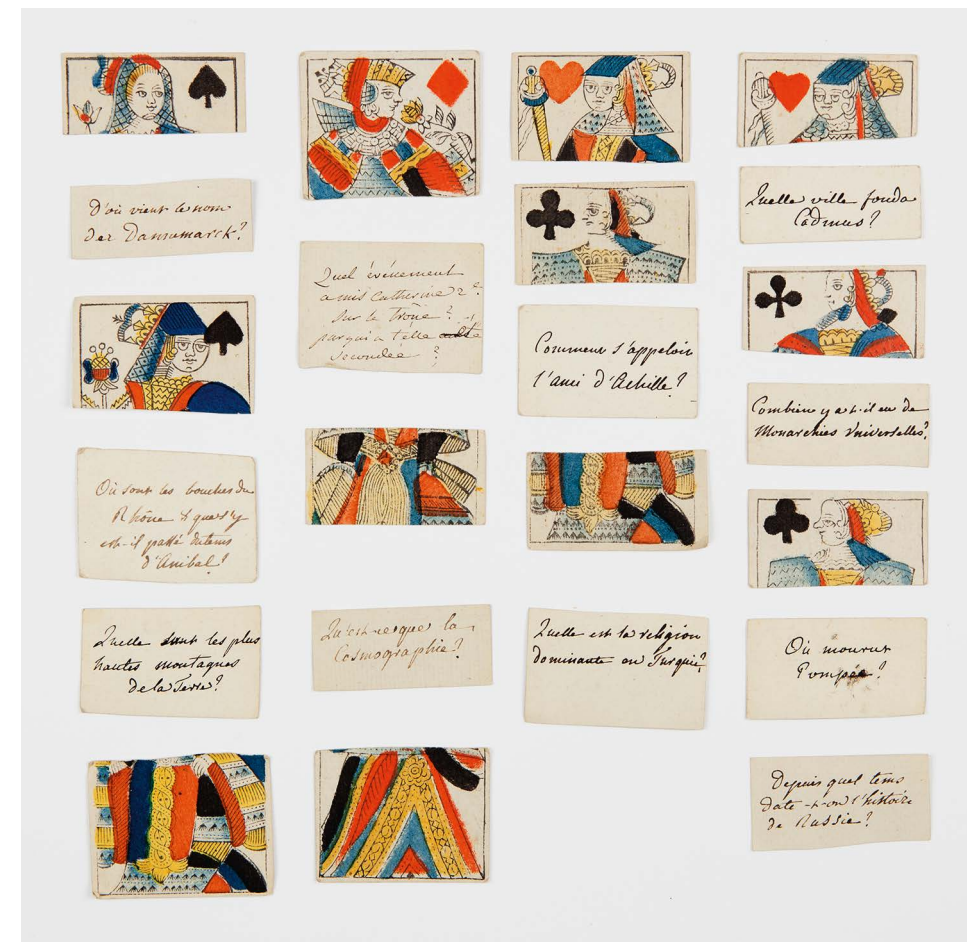 D'où vient le nom
der Dannemarck?
Où sont les bouches du
Rhône & que s'y
est-il passé du tems
d'Anibal?
Quelle sont les plus
hautes montagnes
de la Terre?
Quel événement
a mis Catherine 2de
sur le trône?
par qui a t'elle été
secondée?
Qu'est-ce que la
Cosmographie?
Comment s'appeloit
l'ami d'Achille?
Quelle est la religion
dominante en Turquie?
Quelle ville fonda
Cadmus?
Combien y a t-il eu de
Monarchies Universelles?
Où mourut
Pompée?
Depuis quel tems
date-t-on l'histoire
de Russie?